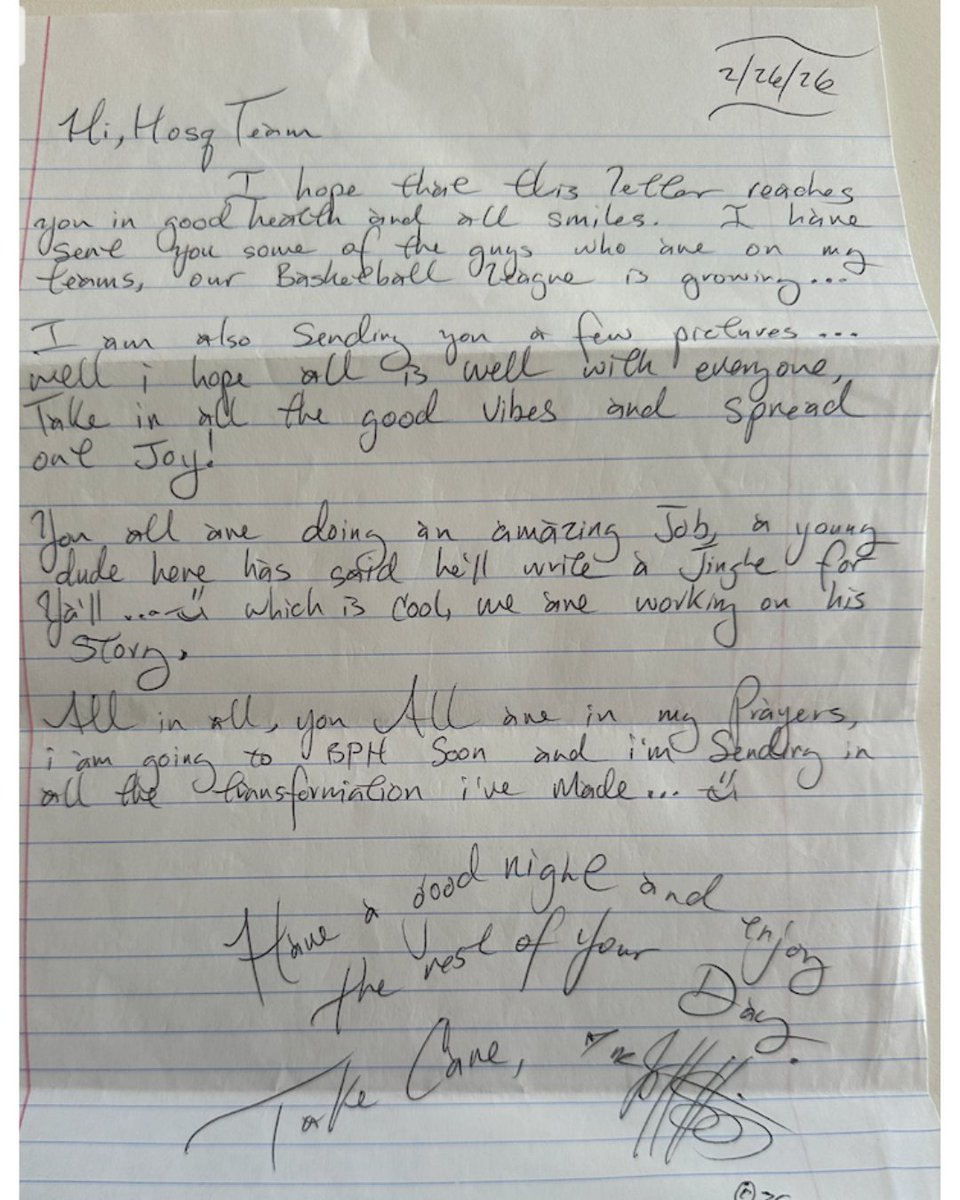 2/26/26
Hi, Hosq Team
I hope that this letter reaches
you in good health and all smiles. I have
sent you some of the guys who are on my
teams, our Basketball league is growing...
I am also Sending you a few pictures...
well i hope all is well with everyone,
Take in all the good vibes and spread
out Joy!
You all are doing an amazing Job, a young
dude here has said he'll write a Jingle for
Ya'll ... which is cool, we are working on his
Story,
All in all, you All are in my Prayers,
i am going to BPH Soon and i'm Sending in
all the transformation i've Made...
Have a Good night and enjoy
the rest of your Day.
Take Care,